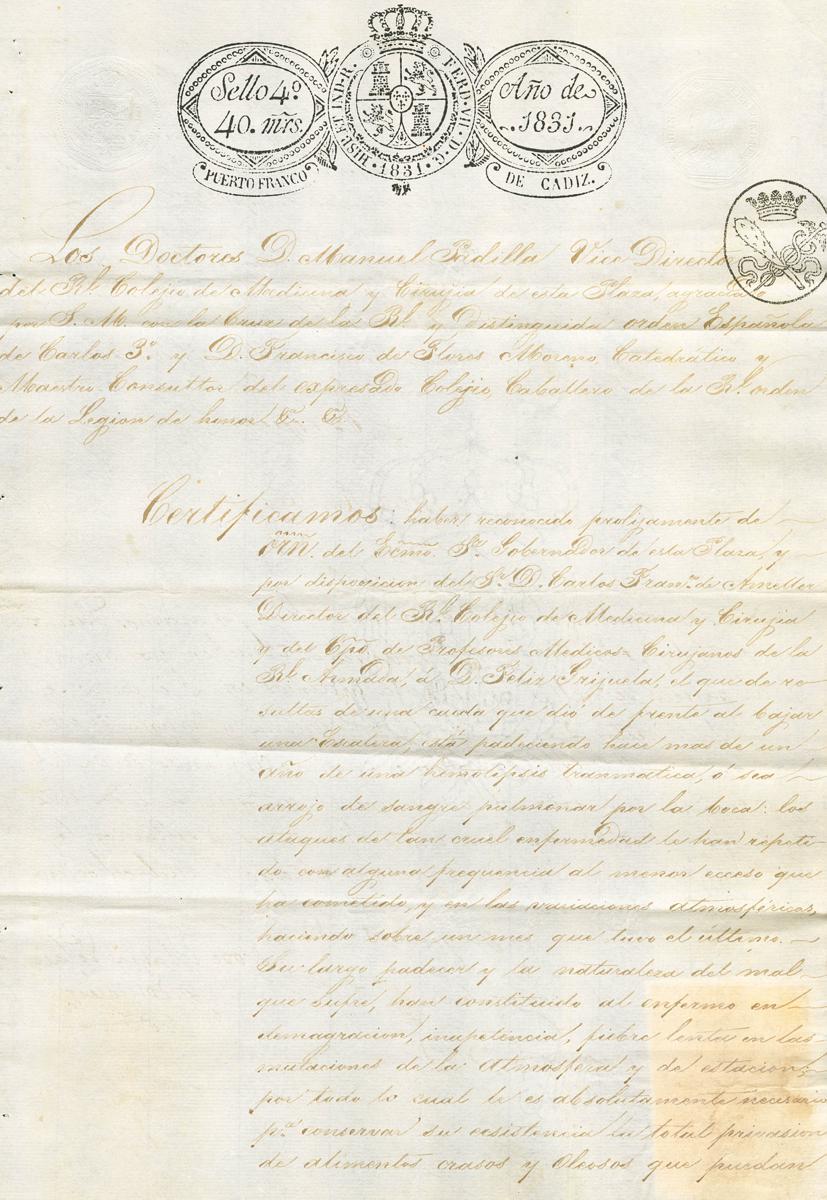 Sello 4º
40. mrs.
PUERTO FRANCO
HISP. ET IND. R. FERD. VII. D. G. 1831.
Año de
1831.
DE CADIZ.
Los Doctores D. Manuel Padilla Vice Direct
del Rl. Colejio de Medicina y Cirujia de esta Plaza, agraciado
por S. M. con la Cruz de la Rl. y Distinguida orden Española
de Carlos 3º y D. Francisco de Flores Moreno, Catedrático y
Maestro Consultor del expresado Colejio, Caballero de la Rl. orden
de la Legion de honor &. &.
Certificamos: haber reconocido prolijamente de
orn. del Ecmo. Sr. Gobernador de esta Plaza, y
por disposicion del Sr. D. Carlos Franco. de Ameller
Director del Rl. Colejio de Medicina y Cirujia
y del Cpo. de Profesores Medicos-Cirujanos de la
Rl. Armada, á D. Felix Grijuela, el que de re-
sultas de una caida que dió de frente al bajar
una Escalera, está padeciendo hace mas de un
año de una hemotipsis tranmatica, ó sea
arrojo de sangre pulmonar por la boca: los
ataques de tan cruel enfermedad le han repeti-
do con alguna frequencia al menor ecceso que
ha cometido, y en las variaciones atmosféricas,
haciendo sobre un mes que tuvo el último.
Su largo padecer y la naturaleza del mal
que sufre, han constituido al enfermo en
demagracion, inapetencia, fiebre lenta en las
mutaciones de la atmosfera y de estacion;
por todo lo cual le es absolutamente necesario
pa. conservar su ecsistencia la total privasion
de alimentos crasos y oleosos que puedan